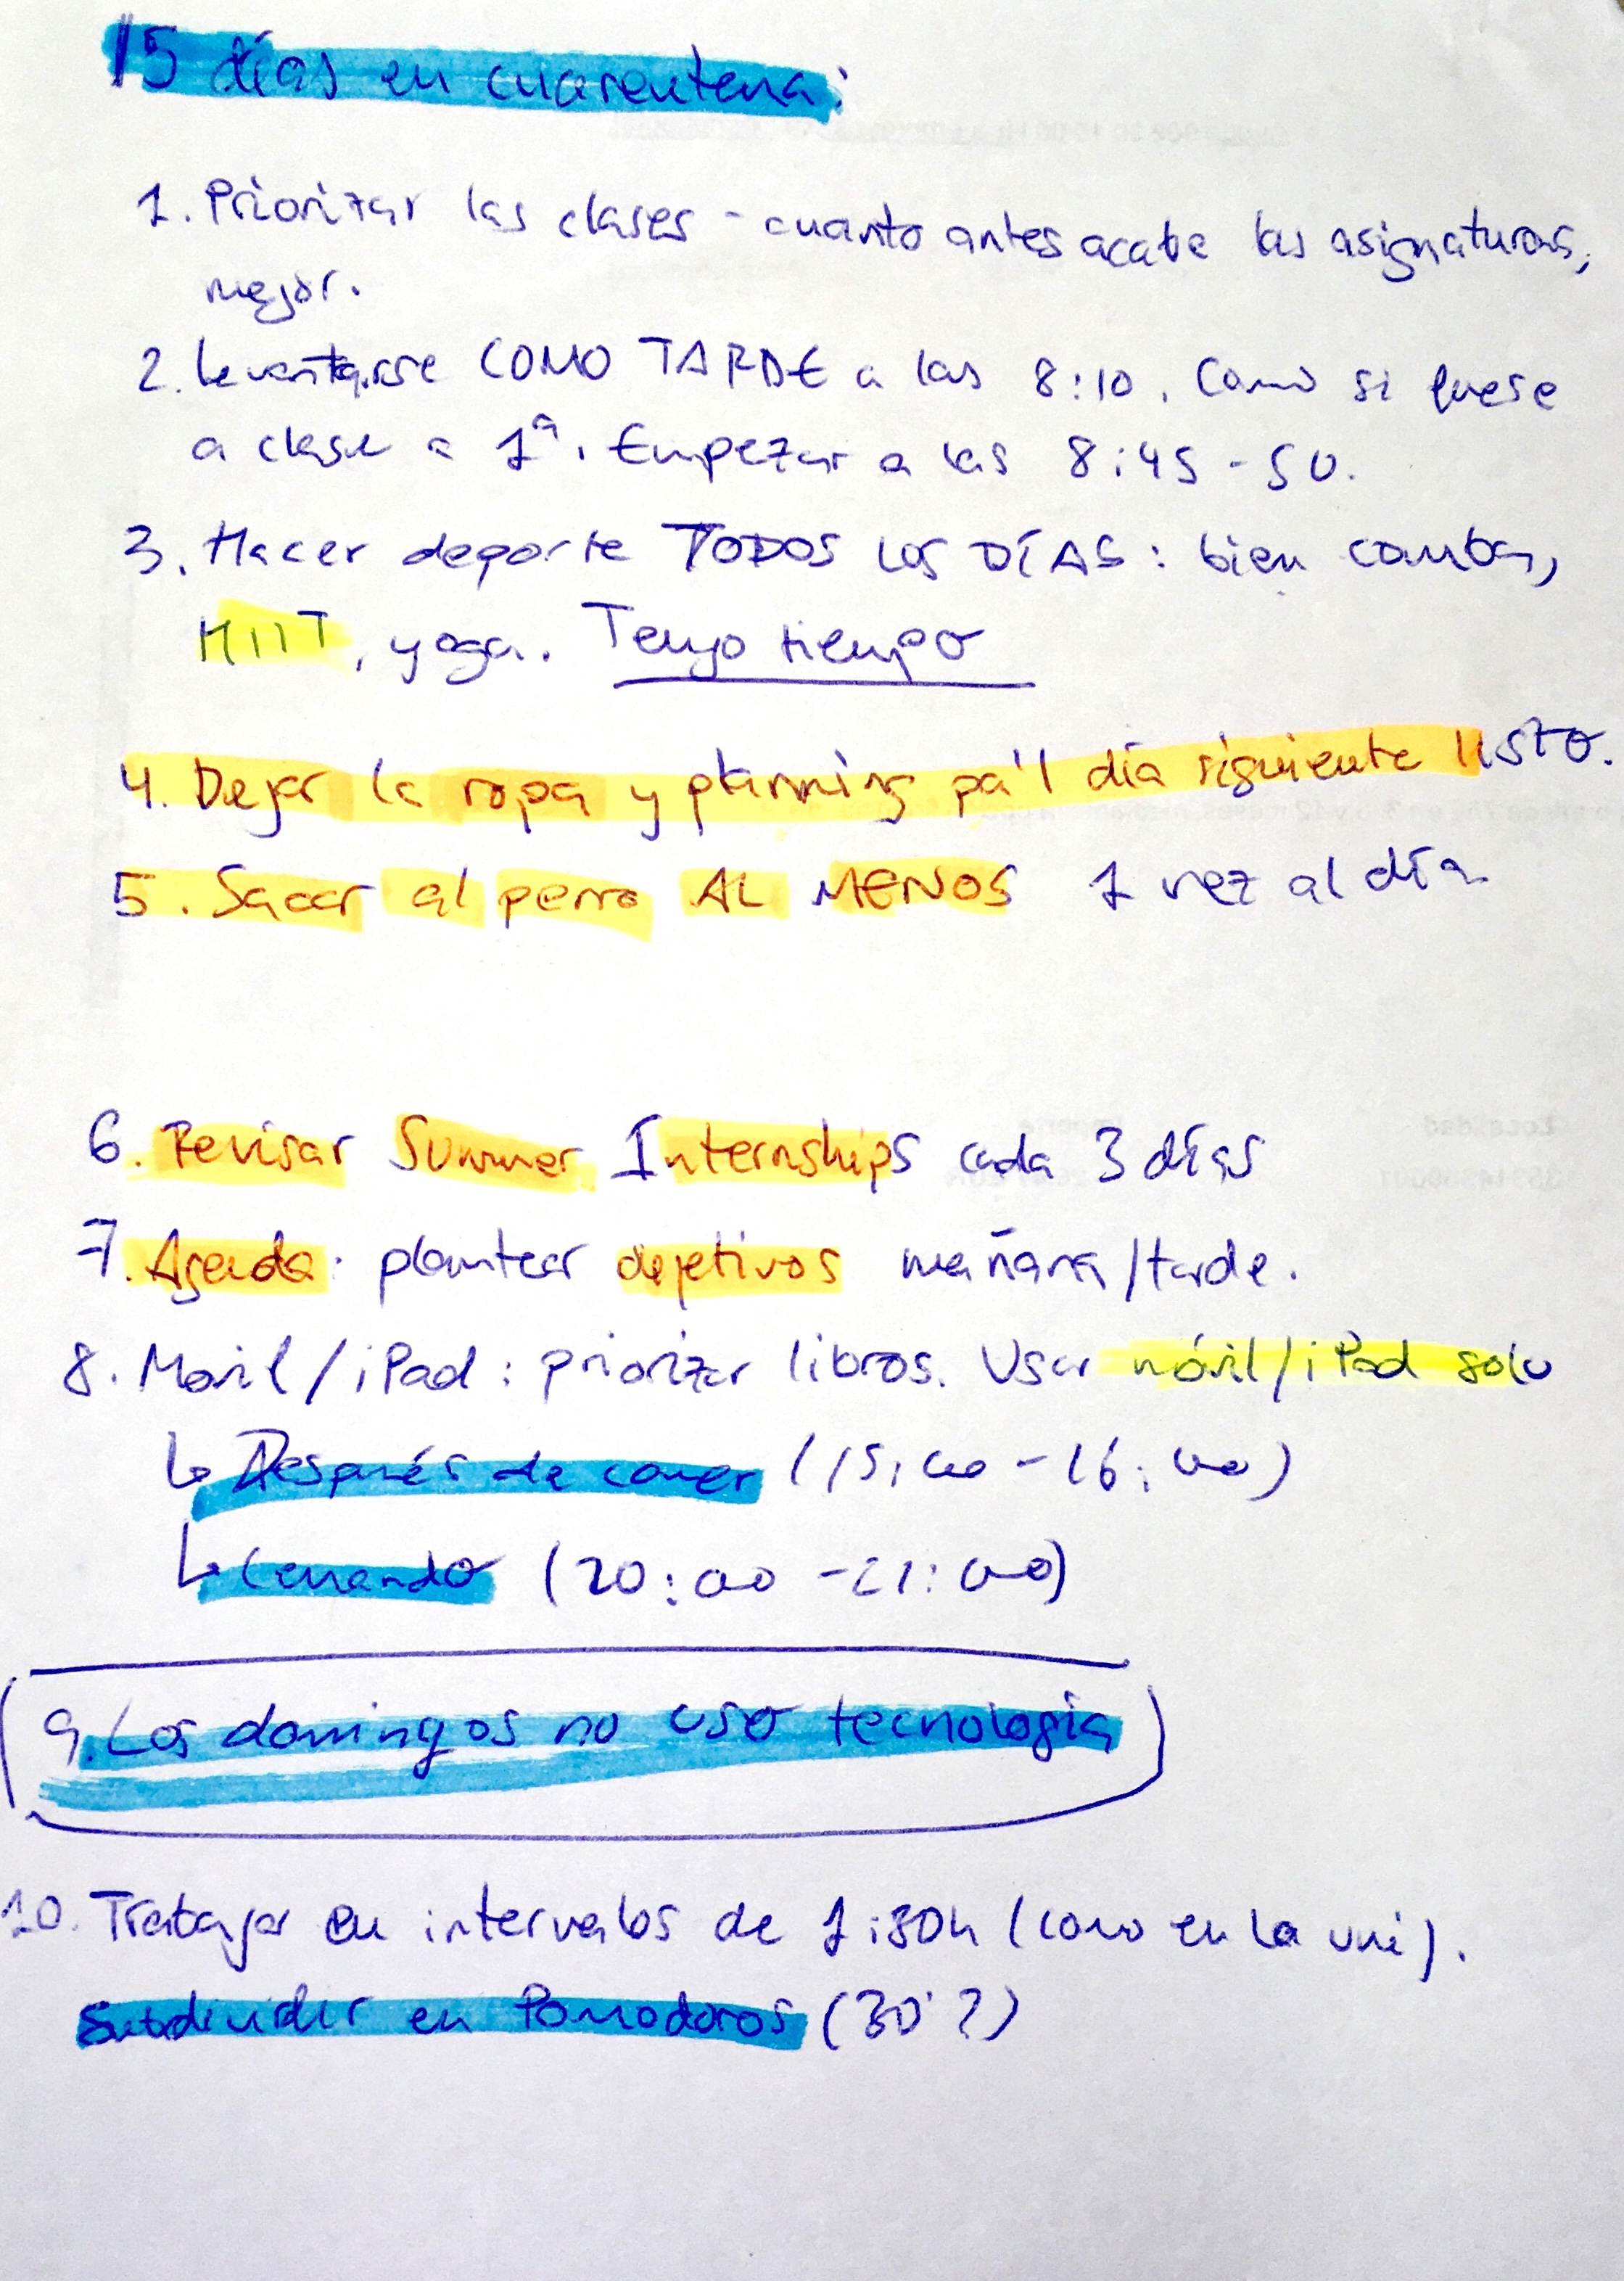 15 días en cuarentena:
1. Priorizar las clases - cuanto antes acabe las asignaturas,
mejor.
2. Levantarse COMO TARDE a las 8:10. Como si fuese
a clase a 1ª. Empezar a las 8:45 - 50.
3. Hacer deporte TODOS LOS DÍAS: bien comba,
HIIT, yoga. Tengo tiempo
4. Dejar la ropa y planning pa'l día siguiente listo.
5. Sacar al perro AL MENOS 1 vez al día
6. Revisar Summer Internships cada 3 días
7. Agenda: plantear objetivos mañana/tarde.
8. Móvil/iPad: priorizar libros. Usar móvil/iPad solo
↳ Después de comer (15:00 - 16:00)
↳ Cenando (20:00 - 21:00)
9. Los domingos no uso tecnología
10. Trabajar en intervalos de 1:30h (como en la uni).
Subdividir en Pomodoros (30'?)